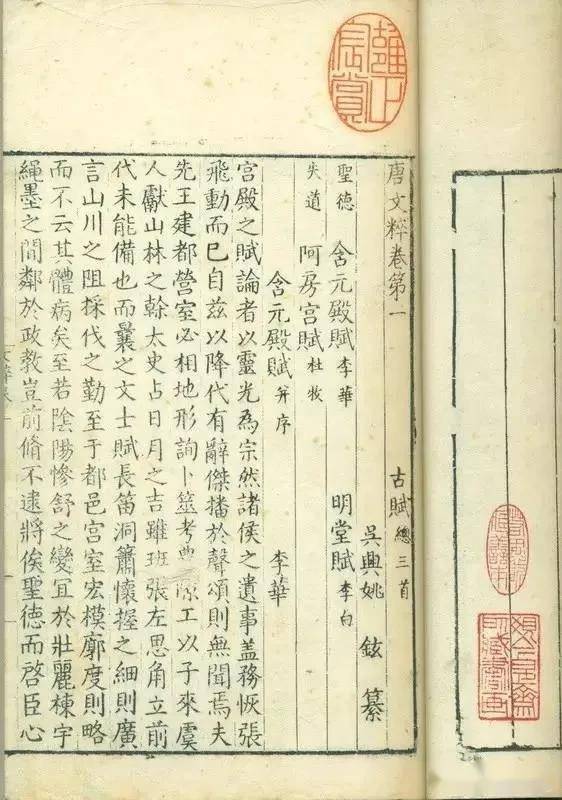 唐文粹卷第一 古賦總三首
吳興姚 鉉 纂
聖德 含元殿賦李華 明堂賦李白
失道 阿房宮賦杜牧
含元殿賦并序 李華
宮殿之賦論者以靈光為宗然諸侯之遺事蓋務恢張
飛動而已自茲以降代有辭傑播於聲頌則無聞焉夫
先王建都營室必相地形詢卜筮考農隙工以子來虞
人獻山林之榦太史占日月之吉雖班張左思角立前
代未能備也而曩之文士賦長笛洞簫懷握之細則廣
言山川之阻採伐之勤至于都邑宮室宏模廓度則略
而不云其體病矣至若陰陽慘舒之變宜於壯麗棟宇
繩墨之間鄰於政教豈前脩不逮將俟聖德而啓臣心